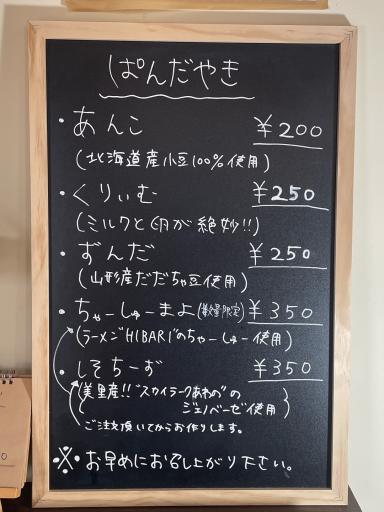 ぱんだやき
・あんこ ￥200
(北海道産小豆100%使用)
・くりぃむ ￥250
(ミルクと卵が絶妙!!)
・ずんだ ￥250
(山形産だだちゃ豆使用)
・ちゃーしゅーまよ(数量限定) ￥350
(ラーメン"HIBARI"のちゃーしゅー使用)
・しそちーず ￥350
(美里産!!"スカイラークあわの"の
ジェノベーゼ使用)
ご注文頂いてからお作りします。
※お早めにお召し上がり下さい。